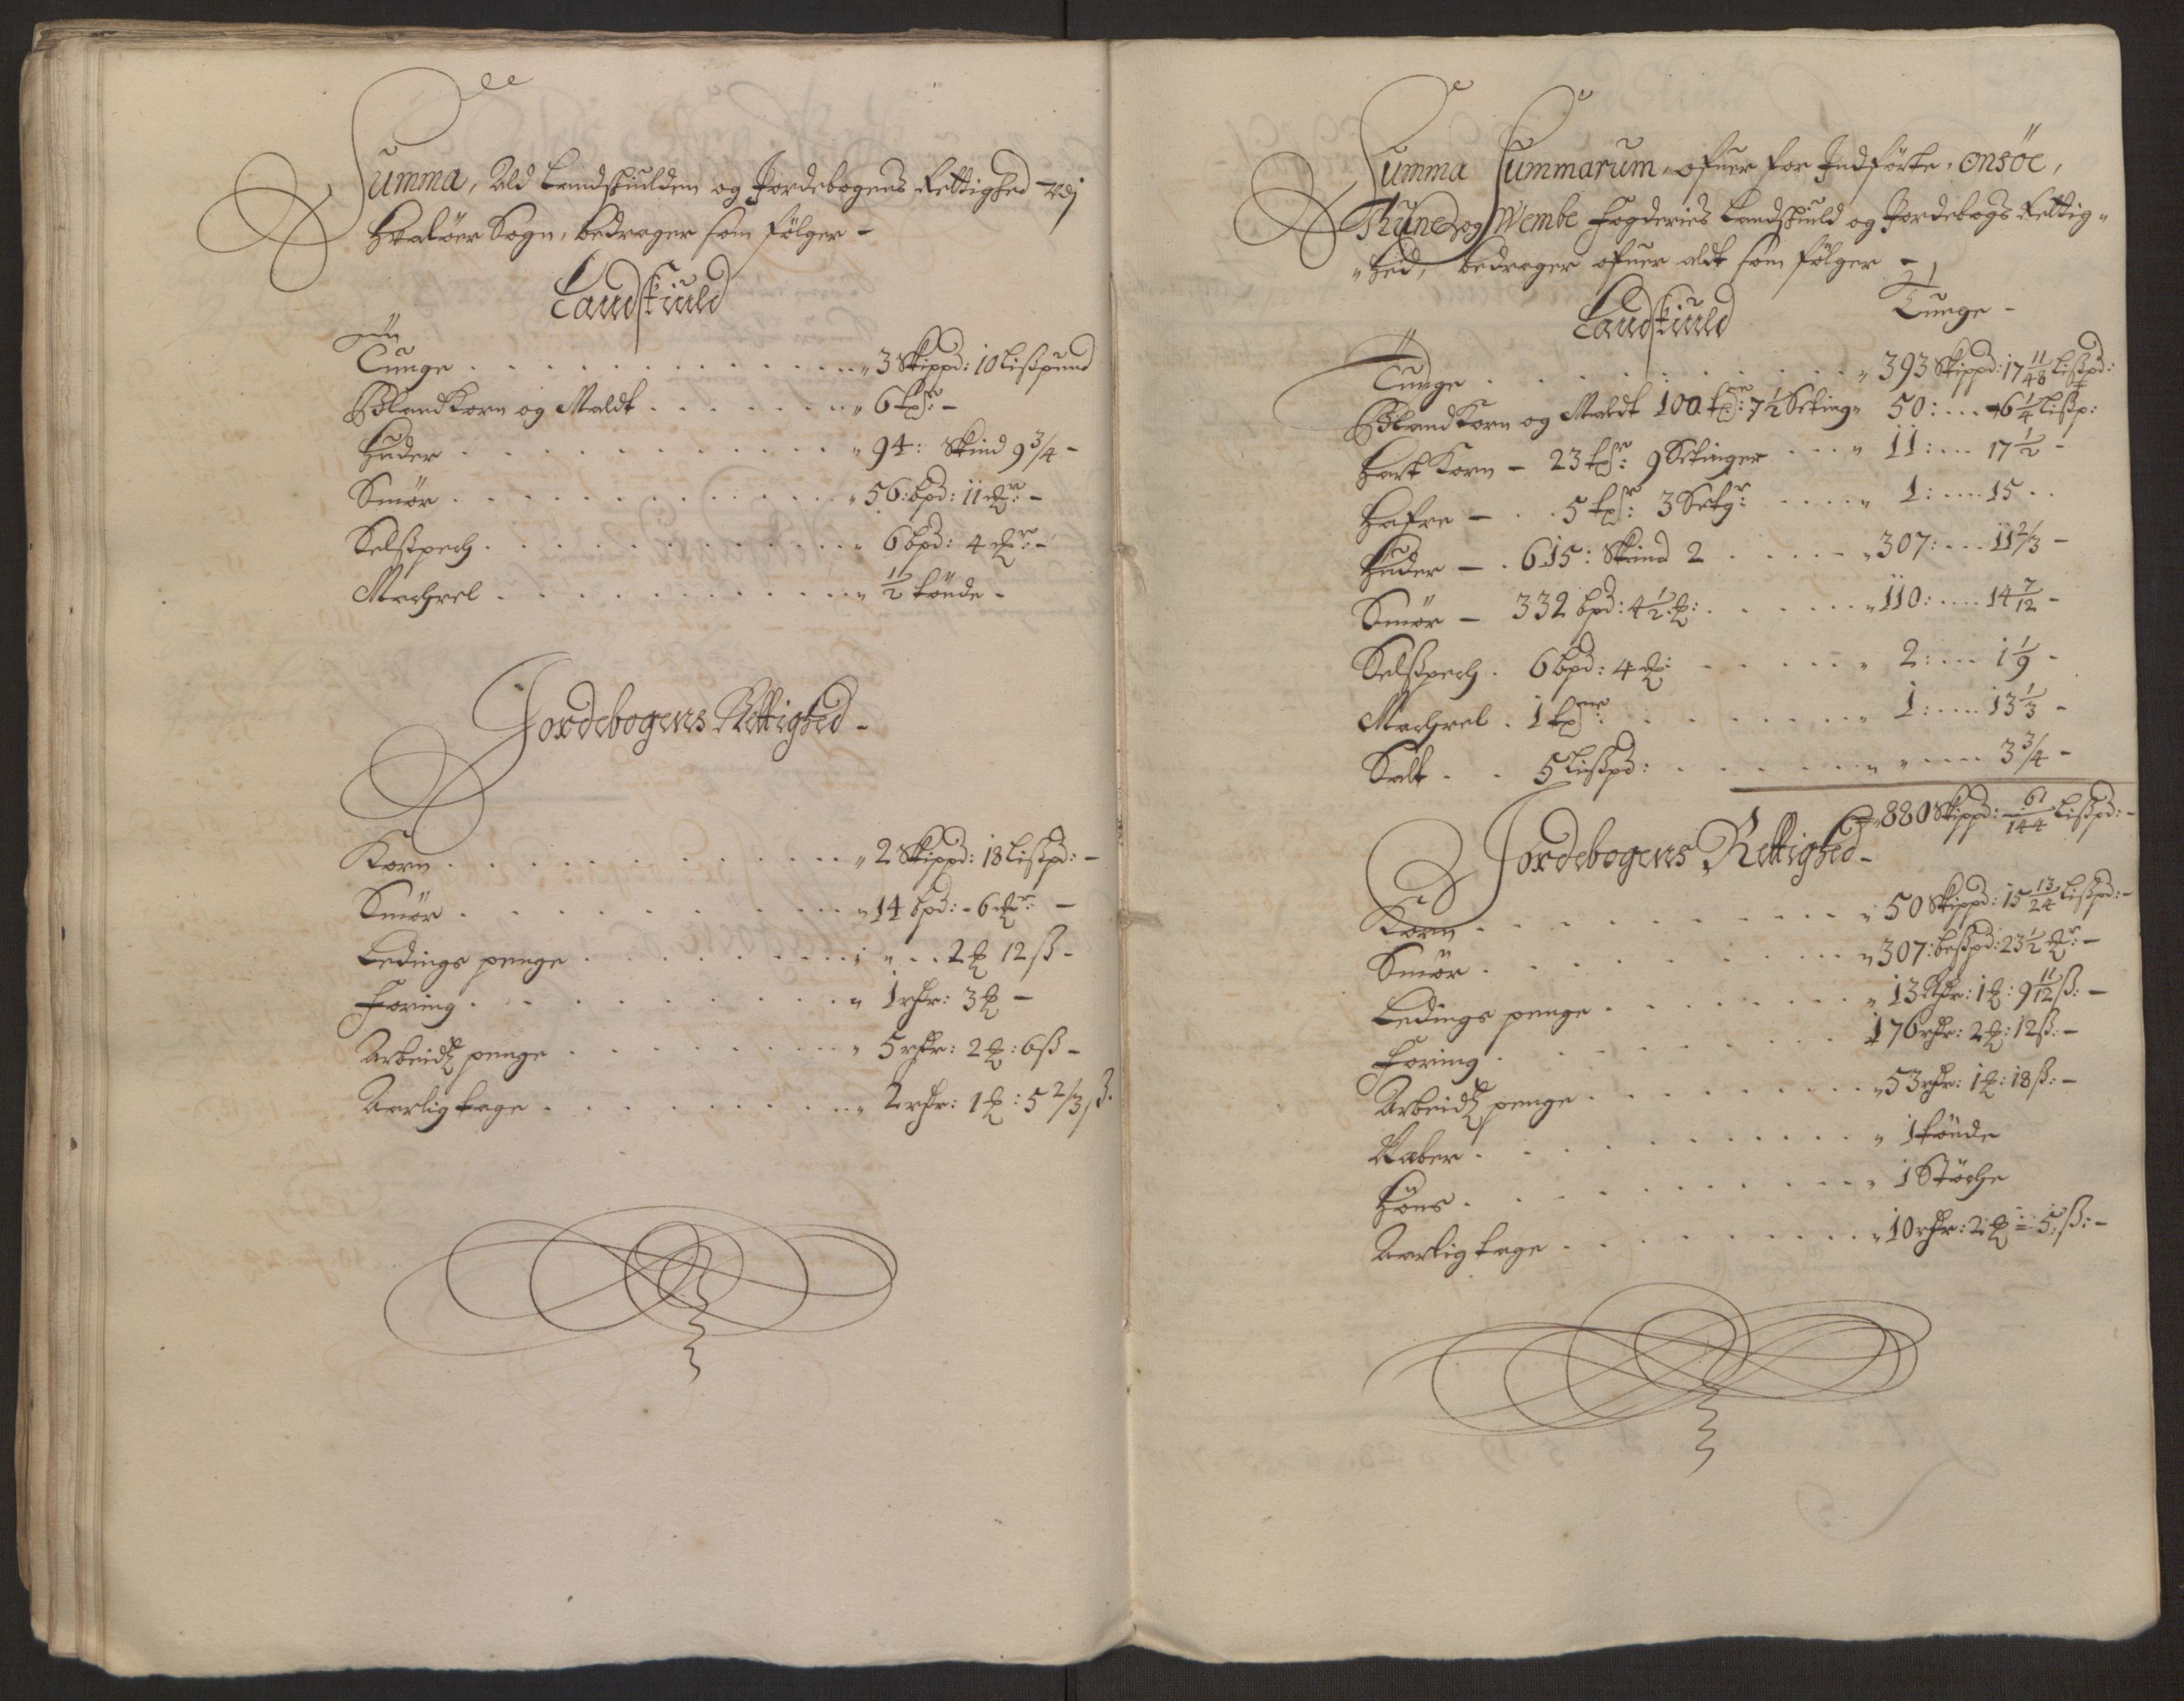 Summa, Ald Landskiulden og Jordebogens Rettighed udj
Hvaløer Sogn, bedrager som følger -
Landskiuld
Tunge . . . . . . . . . „ 3 Skippd: 10 Lißpund
Blandkorn og Maldt . . . . . . „ 6 tdr: -
Huder . . . . . . . . . „ 94: Skind 9 3/4 -
Smør . . . . . . . . . „ 56: bpd: 11 mkr: -
Selßpech . . . . . . . . „ 6 bpd: 4 mkr: -
Machrel . . . . . . . . „ 1/2 tønde -
Jordebogens Rettighed -
Korn . . . . . . . . . „ 2 Skippd: 18 Lißpd: -
Smør . . . . . . . . . „ 14 bpd: - 6 mkr: -
Ledings penge . . . . . . . „ . . 2 mk 12 ß -
Foring . . . . . . . . . „ 1 rdr: 3 mk -
Arbeidtz penge . . . . . . . „ 5 rdr: 2 mk: 6 ß -
Aarlig tage . . . . . . . . „ 2 rdr: 1 mk: 5 2/3 ß.
Summa Summarum, ofuer for Indførte, Onsöe,
Thune og Wembe Fogderies Landskiuld og Jordebogs Rettig„
„hed, bedrager ofuer aldt som følger -
Landskiuld Tunge -
Tunge . . . . . . . . . „ 393 Skippd: 17 11/48 Lißpd:
Blandkorn og Maldt 100 tdr: 7 1/2 Setting „ 50: . . . 6 1/4 Lißp:
Hart Korn - 23 tdr: 9 Setinger . . . „ 11: . . . 17 1/2 -
Hafre - . . 5 tdr: 3 Setgr: . . . . „ 1: . . . . 15 . .
Huder - . 615: Skind 2 . . . . . „ 307: . . . 11 2/3 -
Smør - 332 bpd: 4 1/2 mk: . . . . . „ 110: . . . . 14 7/12 -
Selßpech . 6 bpd: 4 mk: . . . . . „ 2: . . . . 1 1/9 -
Machrel . 1 tdne: . . . . . . . „ 1: . . . . 13 1/3 -
Salt . . 5 Lißpd: . . . . . . . „ „ . . . . 3 3/4 -
880 Skippd: - 61/144 Lißpd: -
Jordebogens Rettighed -
Korn . . . . . . . . . „ 50 Skippd: 15 13/24 Lißpd: -
Smør . . . . . . . . . „ 307: bißpd: 23 1/2 mkr: -
Ledings penge . . . . . . . „ 13 Rdr: 1 mk: 9 11/12 ß: -
Foring . . . . . . . . . 176 rdr: 2 mk: 12 ß: -
Arbeidtz penge . . . . . . . „ 53 rdr: 1 mk: 18 ß: -
. . . . . . . . . „ 1 tønde
Høns . . . . . . . . . „ 1 Støche
Aarlig tage . . . . . . . . „ 10 rdr: 2 mk = 5: ß: -